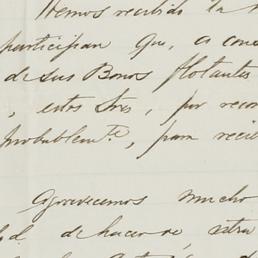 Hemos recibido la
participan que, a con
de sus Bonos flotantes
, estos Sres, por recon
probablem.te, para recib
Agradecemos mucho
d. de hacer